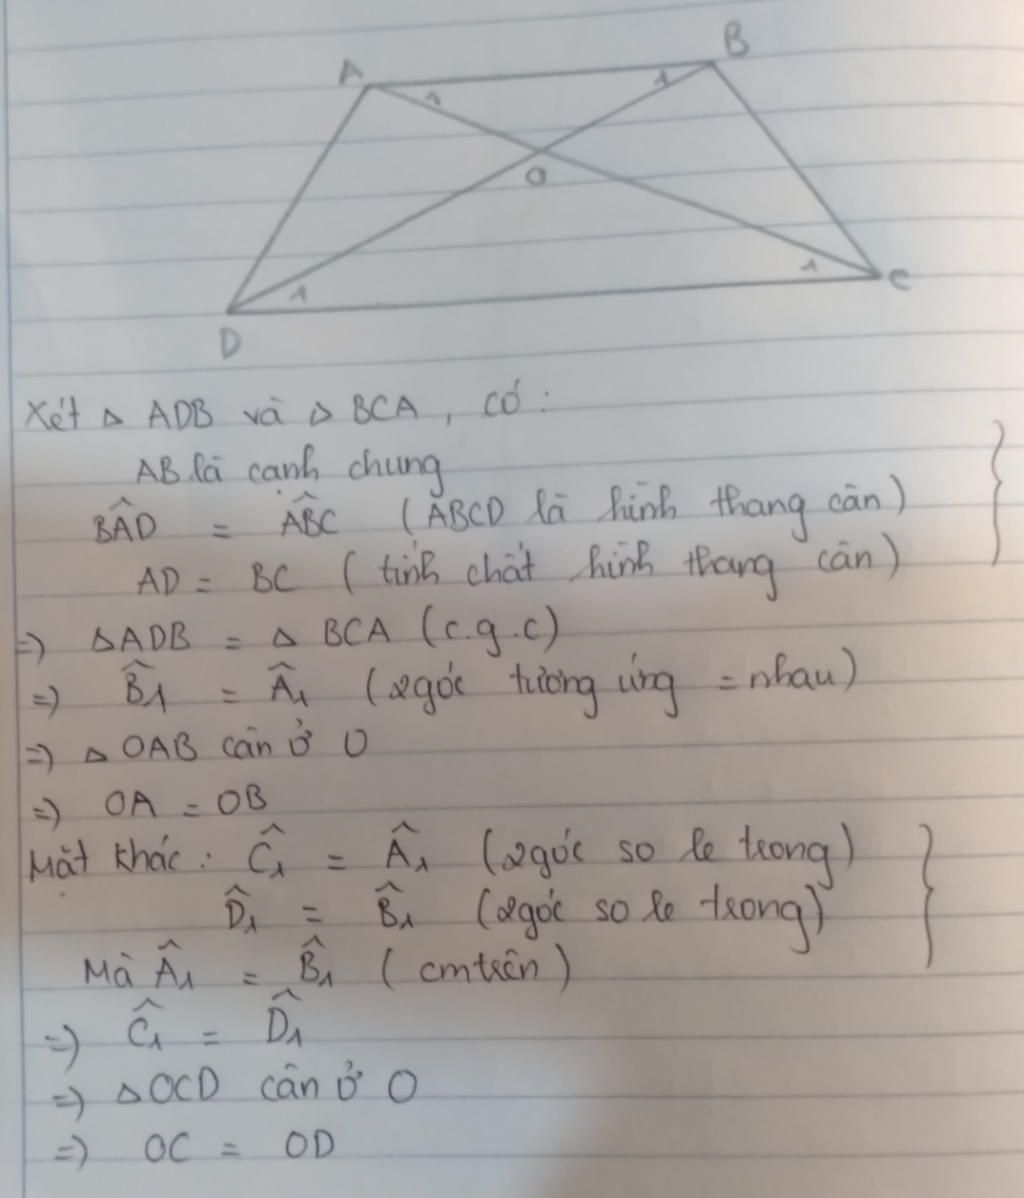 A
B
1
1
O
1
1
C
D
Xét Δ ADB và Δ BCA, có:
AB là cạnh chung
B̂AD = ÂBC (ABCD là hình thang cân)
AD = BC (tính chất hình thang cân)
=> ΔADB = Δ BCA (c.g.c)
=> B̂1 = Â1 (2góc tương ứng = nhau)
=> Δ OAB cân ở O
=> OA = OB
Mặt khác: Ĉ1 = Â1 (2góc so le trong)
D̂1 = B̂1 (2góc so le trong)
Mà Â1 = B̂1 (cmtrên)
=> Ĉ1 = D̂1
=> ΔOCD cân ở O
=> OC = OD